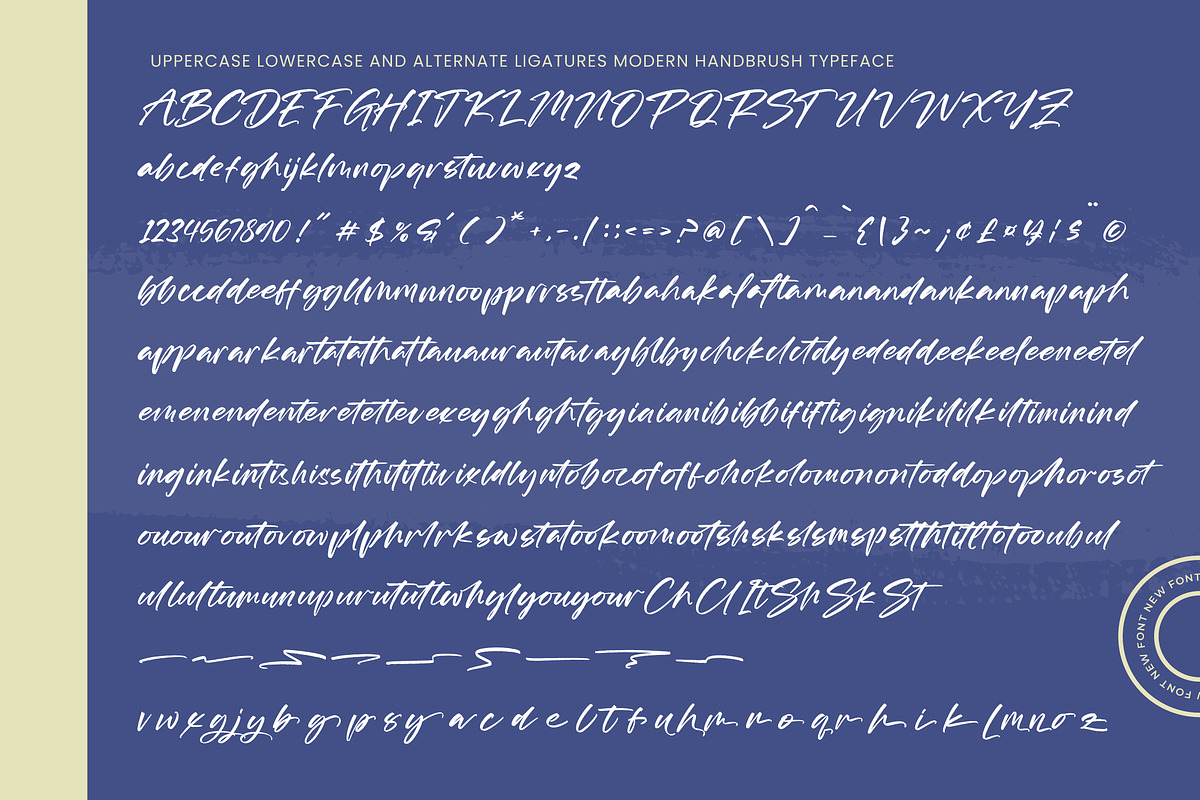 UPPERCASE LOWERCASE AND ALTERNATE LIGATURES MODERN HANDBRUSH TYPEFACE
ABCDEFGHIJKLMNOPQRSTUVWXYZ
abcdefghijklmnopqrstuvwxyz
1234567890!"#$%&'()*+,-./:;<=>?@[\]^_`{|}~¡¢£¤¥¦§¨©
bbccddeeffggllmmnnoopprrssttabahakalaftamanandankannapaph
appararkartatathattauaurautavayblbychckclctdyededdeekeeleeneetel
emenendenteretettevexeyghghtgyiaianibibbififtigignikililkiltiminind
inginkintishissithititivixldlyntobocofoffohokolomonontoddopophorosot
ououroutovowplphrlrkswstatookoomootshskslsmspstthtitltotooubul
ullultumunupurututtwhylyouyourChClItShSkSt
vwxgjybgpsyacdelttuhmroqrhiklmnoz
NEW FONT NEW FONT